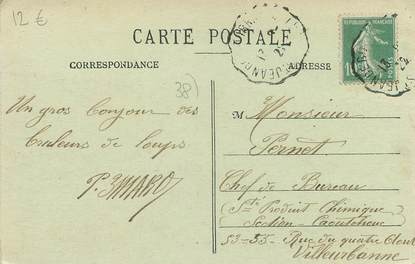 12 €
CARTE POSTALE
CORRESPONDANCE
ADRESSE
38)
REPUBLIQUE FRANÇAISE
10
Un gros bonjour des
tueurs de loups
M Monsieur
Pernet
Chef de Bureau
Sté Produit Chimique
Section - Caoutchouc
53-55 - Rue du quatre Août
Villeurbanne